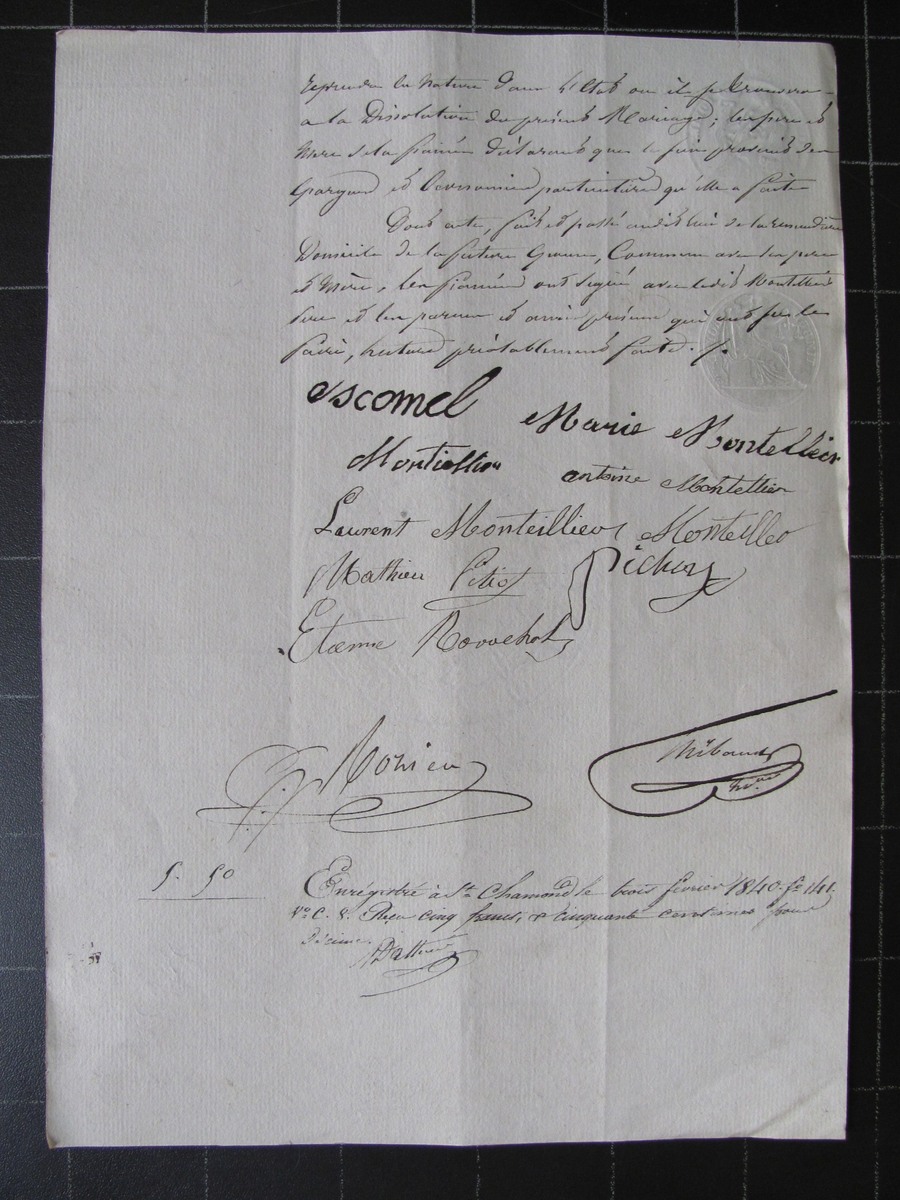 reprendre en nature dans l'état où ils se trouvera
a la Dissolution du présent Mariage; les pere et
Mere de la fiancée déclarant que
et particulière qu'elle a faite
Dont acte, fait et passé audit lieu de
Domicile de la future Comme avec les pere
et Mère, les fiancés ont signé avec ledit Montellier
pere et les parens et amis présens qui ont su le
faire, lecture préalablement faite. /.
escomel
Marie Montellier
Montiellier
antoine Montellier
Laurent Monteillier
Monteiller
Mathieu
Pichon
Etienne Ravachol
Thibaud
5. 50
Enrégistré à St. Chamond le trois février 1840. fo 141.
Vo. C. 8. Reçu cinq francs, & cinquante centimes pour
Décime.